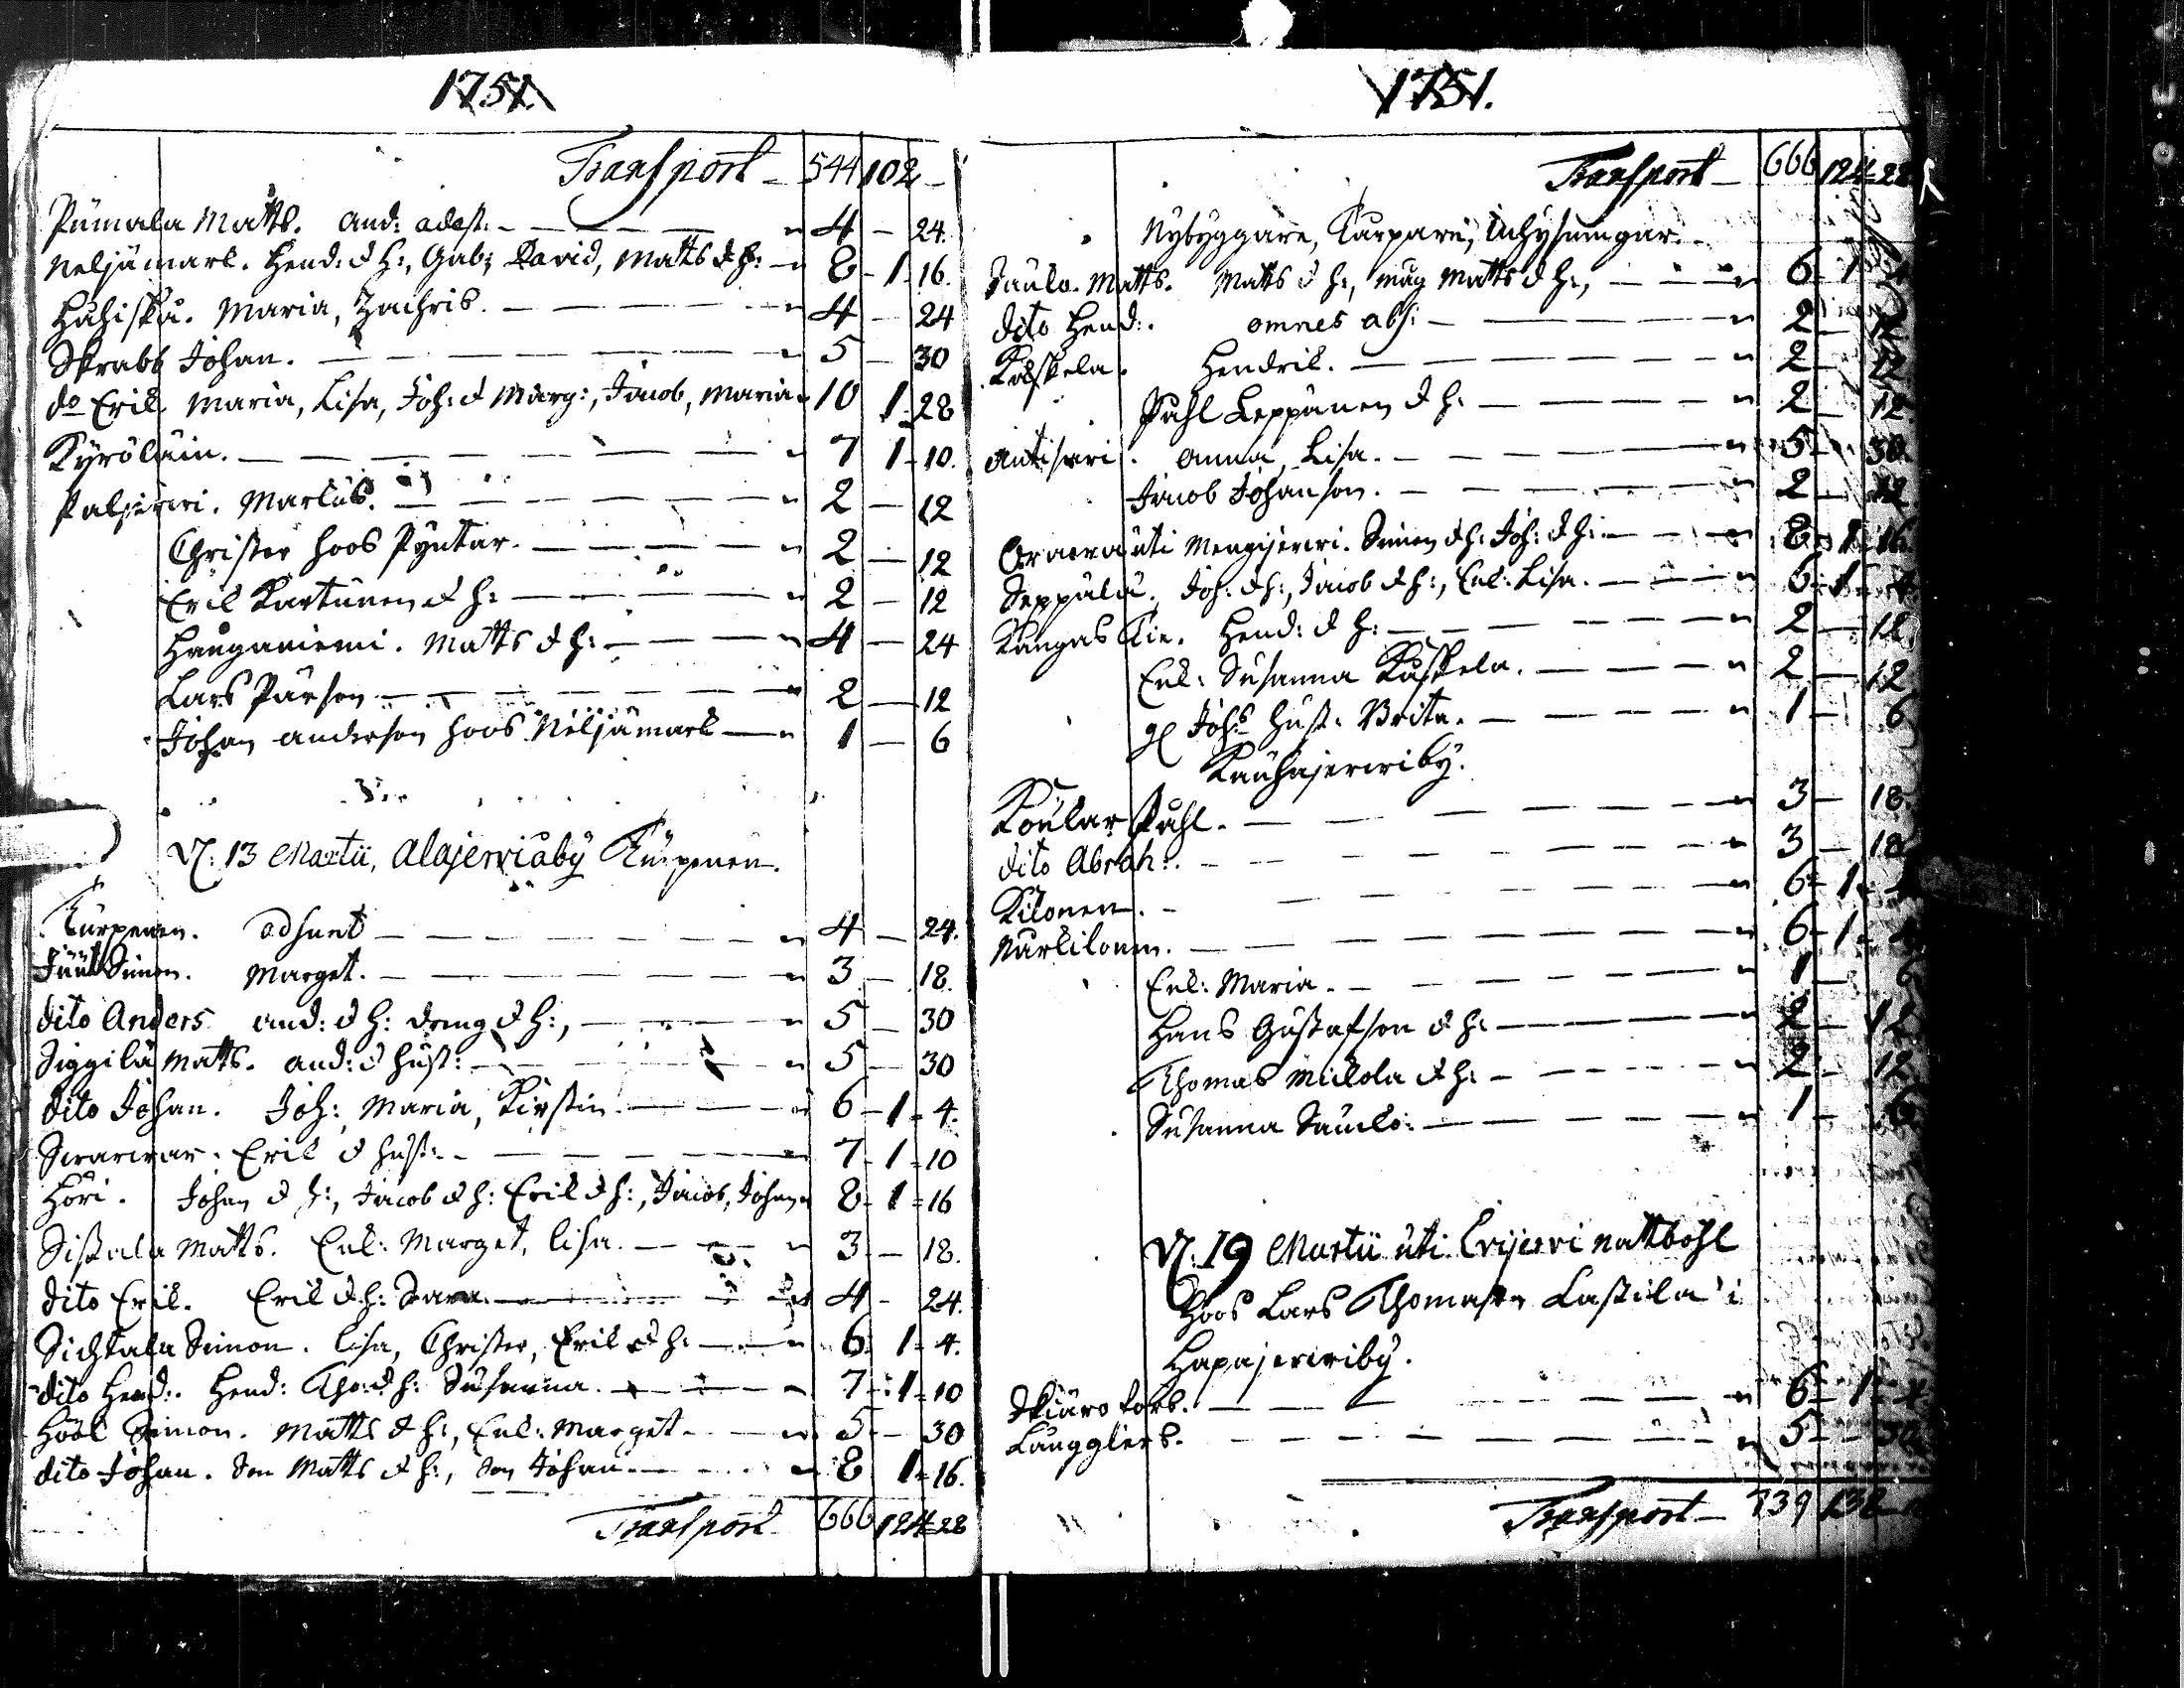 1751.
Transport - 544 102 -
Púmala Matts. And: adest. - 4 - 24.
Neljämark. Hend: & H:, Gab: David, Matts & h: - 8 - 1 - 16.
Huhiska. Maria, Zachris. - 4 - 24
Skrabb Johan. - 5 - 30
do Erik. Maria, Lisa, Joh: & Marg:, Jacob, Maria 10 1 - 28
Kyröläin. - 7 1 - 10.
Paljerwi. Markus. - 2 - 12
Christer hoos Pyntar. - 2 - 12
Erik Kartunen & h: - 2 - 12
Hauganiemi. Matts & h: - 4 - 24
Lars Pärson - 2 - 12
Johan Anderson hoos Neljämark - 1 - 6
D. 13 Martii, Alajerwiby Kurpenen.
Kurpenen. adsunt - 4 - 24.
Simon. Marget. - 3 - 18.
dito Anders And: & h: dreng & h:, - 5 - 30
Siggilä Matts. And: & hust: - 5 - 30
dito Johan. Joh: Maria, Kirstin - 6 - 1 - 4.
Erik & hust: - 7 - 1 = 10
Höri. Johan & h:, Jacob & h: Erik & h:, Jacob, Johan 8 - 1 = 16
Sissala Matts. Enk: Marget, Lisa. - 3 - 18.
dito Erik. Erik & h: Sara - 4 - 24.
Sichtala Simon. Lisa, Christer, Erik & h: - 6 1 = 4.
dito Hend:. Hend: Tho: & h: Susanna. - 7 - 1 = 10
Höök Simon. Matts & h:, Enk: Marget - 5 - 30
dito Johan. Son Matts & h:, Son Johan - 8 1 = 16.
Transport - 666 124 = 28
1751.
Transport - 666 124 = 28
Nybyggare, Torpare, Inhysningar.
Saulo. Matts. Matts & h:, måg Matts & h:, - 6 - 1
dito Hend:. omnes abs: - 2 - 12
Kaskela. Hendrik. - 2 - 12
Påhl Leppänen & h: - 2 - 12
Antiserri. Anna, Lisa. - 5 - 30
Jacob Johanson. - 2 - 12
uti Simon & h: Joh: & h: - 8 1 16.
Seppälä. Joh: & h:, Jacob & h:, Enk: Lisa. - 6 - 1
Kangas Hend: & h: - 2 - 12
Enk: Susanna Kaskela. - 2 - 12
gl Johs Hust: Brita. - 1 - 6
Kauhajerwiby.
Koular Påhl. - 3 - 18.
dito Abrah:. - 3 - 18
Kilonen. - 6 - 1 = 4
Markilonen. - 6 - 1 = 4
Enk: Maria. - 1 - 6
Hans Gustafson & h: - 2 - 12
Thomas Mickola & h: - 2 - 12
Susanna Saulo: - 1 - 6
D. 19 Martii uti Evijerwi nattbohl
hoos Lars Thomason Lastila i
Hapajerwiby.
Skiäro torb. - 6 - 1 - 4
Langgliers. - 5 - 30
Transport - 739 138